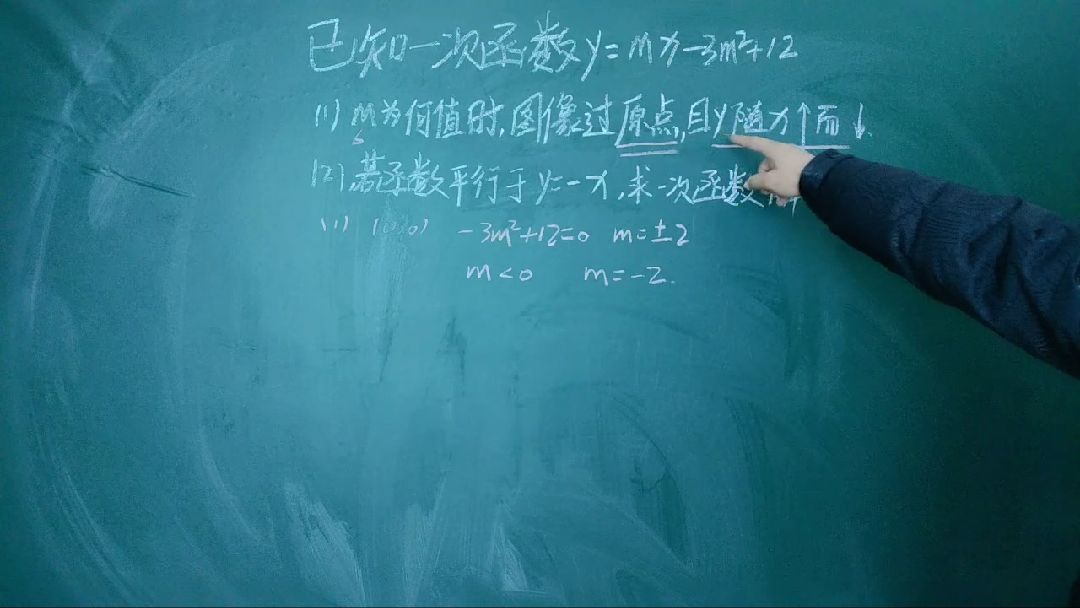 已知一次函数y=mx-3m²+12
(1) m为何值时,图像过原点,且y随x↑而↓.
(2),若函数平行于y=-x,求一次函数
(1) (0,0) -3m²+12=0 m=±2
m<0 m=-2.